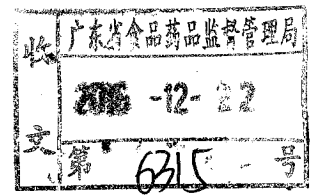 收文
广东省食品药品监督管理局
2016 -12- 22
第 6315 号